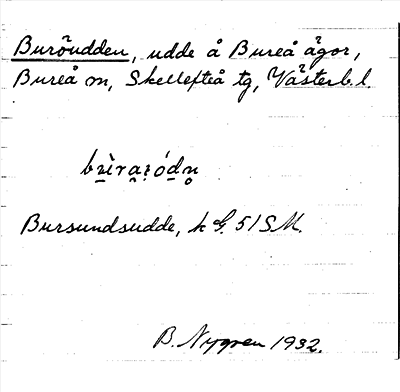 Buröudden, udde å Bureå ägor,
Bureå sn, Skellefteå tg, Västerb. l.
Bursundsudde, k G. 51 S.M.
B. Nygren 1932.